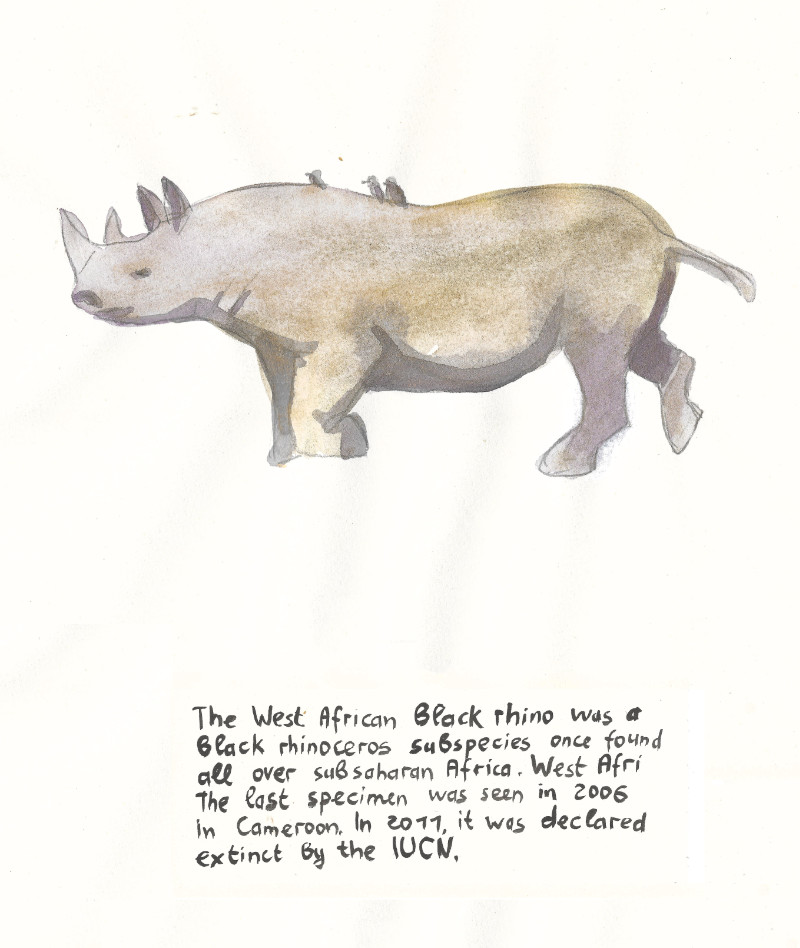 The West African Black rhino was a
Black rhinoceros subspecies once found
all over subsaharan Africa. West Afri
The last specimen was seen in 2006
in Cameroon. In 2011, it was declared
extinct by the IUCN.